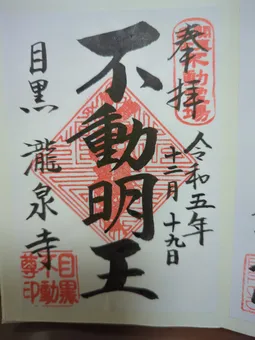 奉拝
令和五年
十二月十九日
不動明王
目黒 瀧泉寺
目黒
不動
尊印